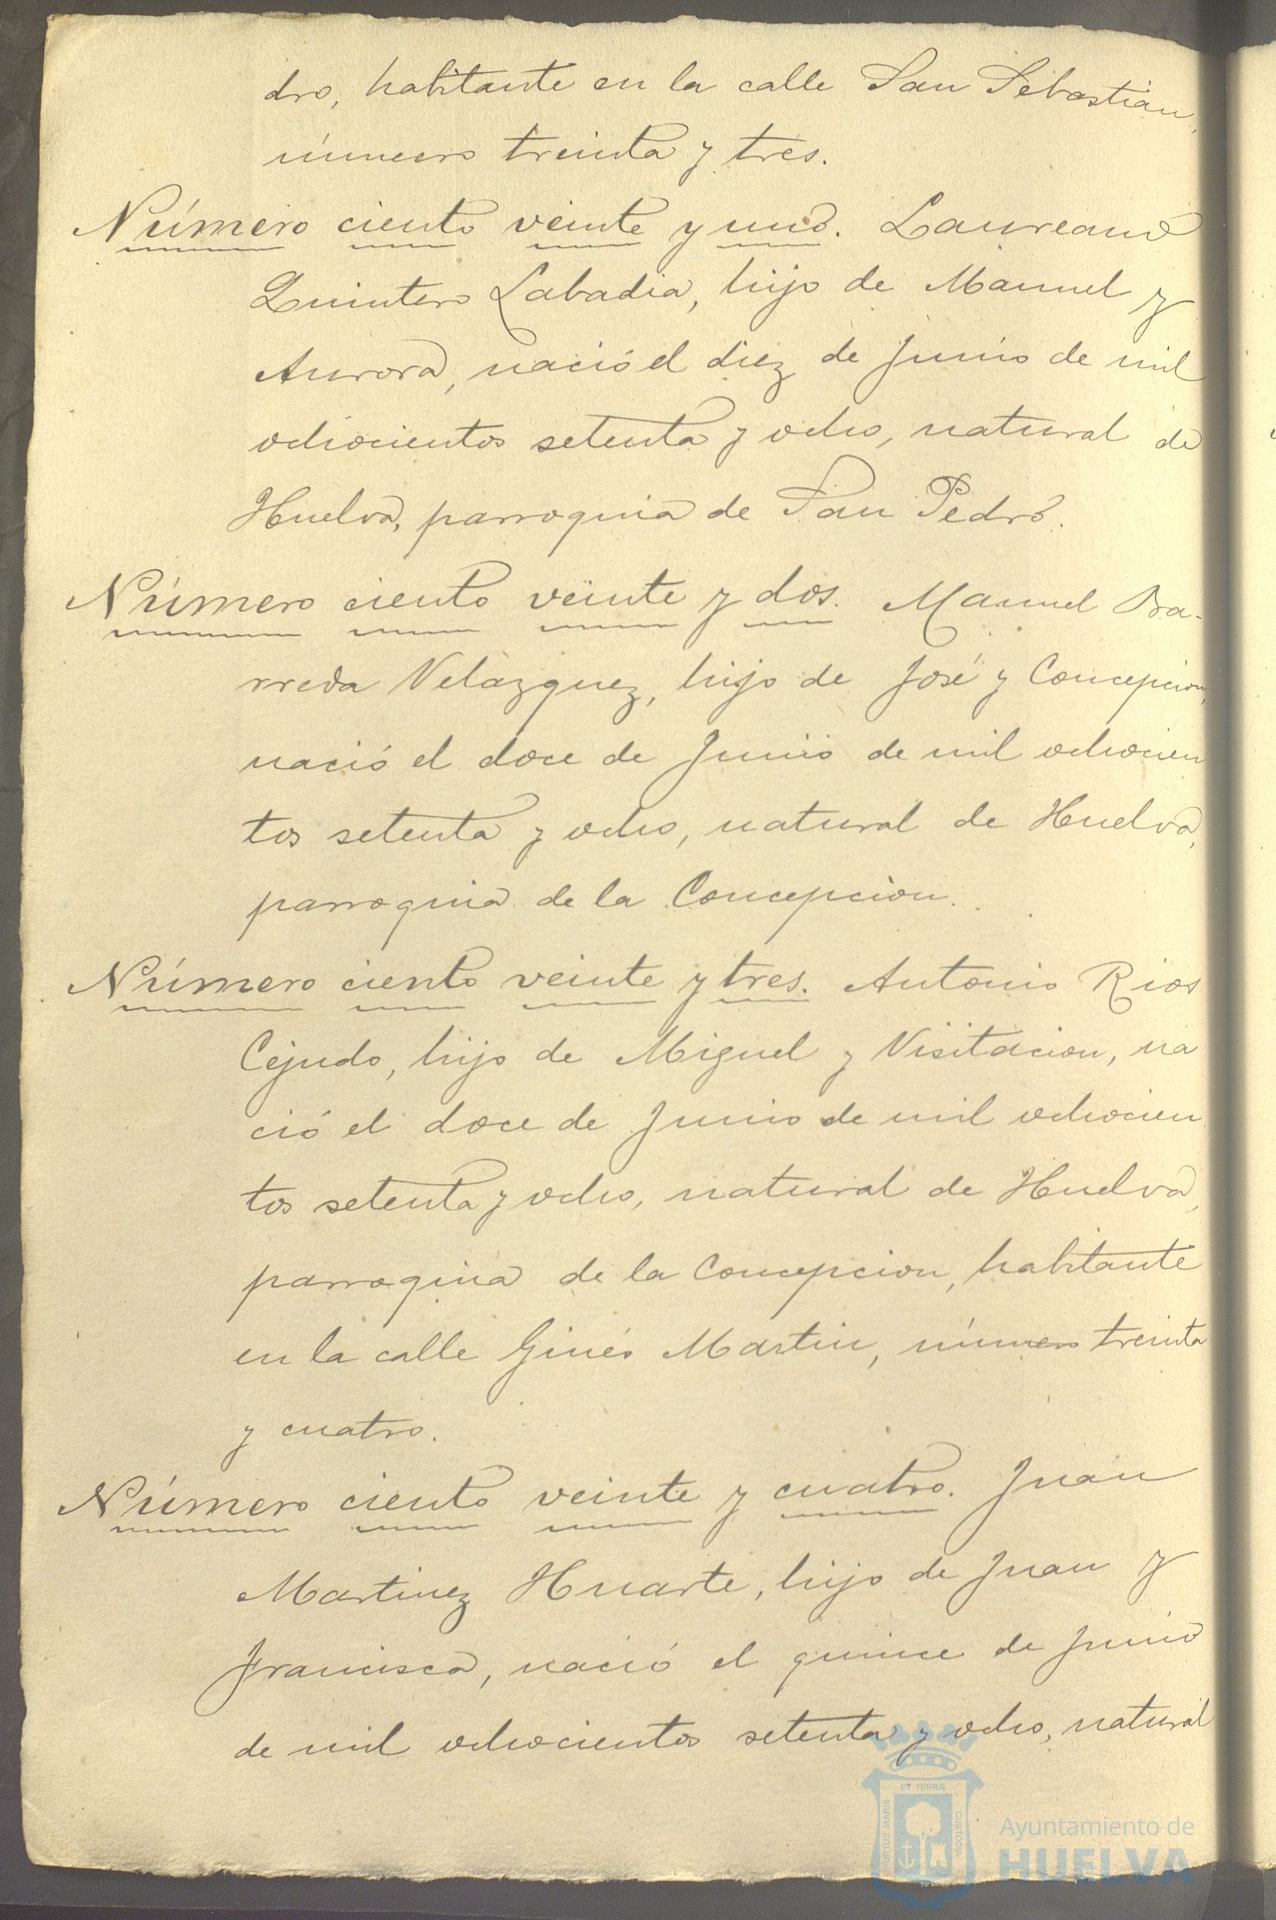 dro, habitante en la calle San Sebastian,
número treinta y tres.
Número ciento veinte y uno. Laureano
Quintero Labadia, hijo de Manuel y
Aurora, nació el diez de Junio de mil
ochocientos setenta y ocho, natural de
Huelva, parroquia de San Pedro.
Número ciento veinte y dos. Manuel Ba-
rreda Velazquez, hijo de José y Concepcion,
nació el doce de Junio de mil ochocien
tos setenta y ocho, natural de Huelva,
parroquia de la Concepcion.
Número ciento veinte y tres. Antonio Rios
Cejudo, hijo de Miguel y Visitacion, na
ció el doce de Junio de mil ochocien
tos setenta y ocho, natural de Huelva,
parroquia de la Concepcion, habitante
en la calle Ginés Martin, número treinta
y cuatro.
Número ciento veinte y cuatro. Juan
Martinez Huarte, hijo de Juan y
Francisca, nació el quince de Junio
de mil ochocientos setenta y ocho, natural
ET TERRÆ
PORTUS MARIS
CUSTODIA
Ayuntamiento de
HUELVA